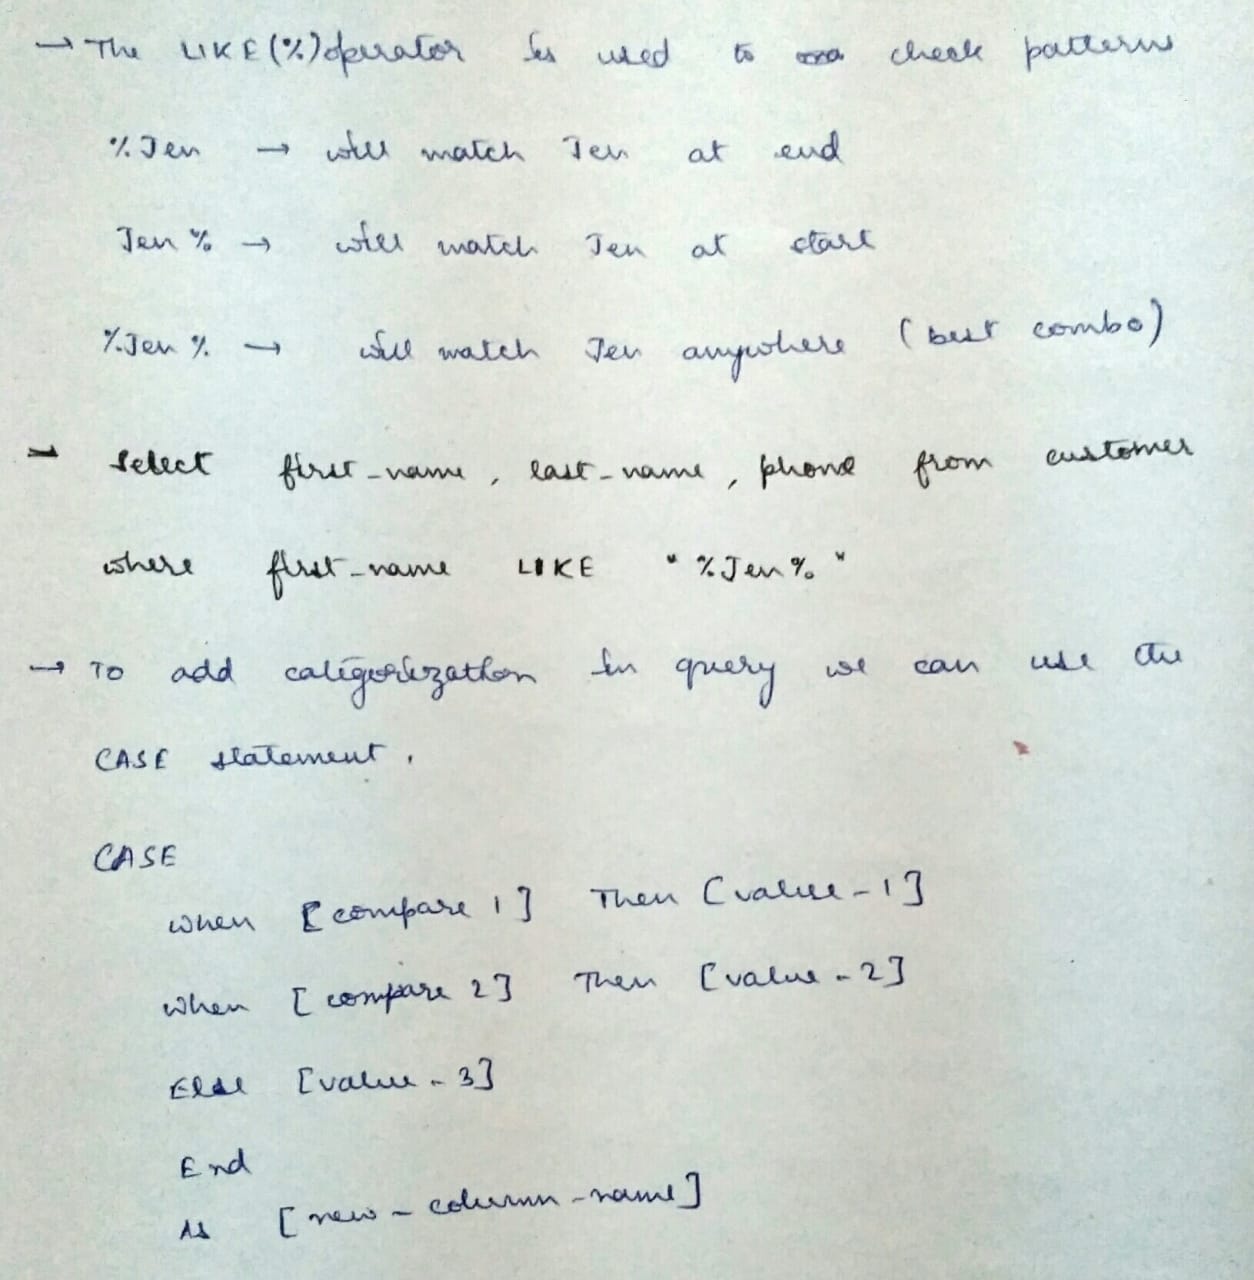 → The LIKE (%) operator is used to check patterns
% Jen → will match Jen at end
Jen % → will match Jen at start
% Jen % → will match Jen anywhere (best combo)
→ Select first_name, last_name, phone from customer
where first_name LIKE "%Jen%"
→ To add categorization in query we can use the
CASE statement.
CASE
when [compare 1] Then [value-1]
when [compare 2] Then [value-2]
Else [value-3]
End
As [new-column-name]